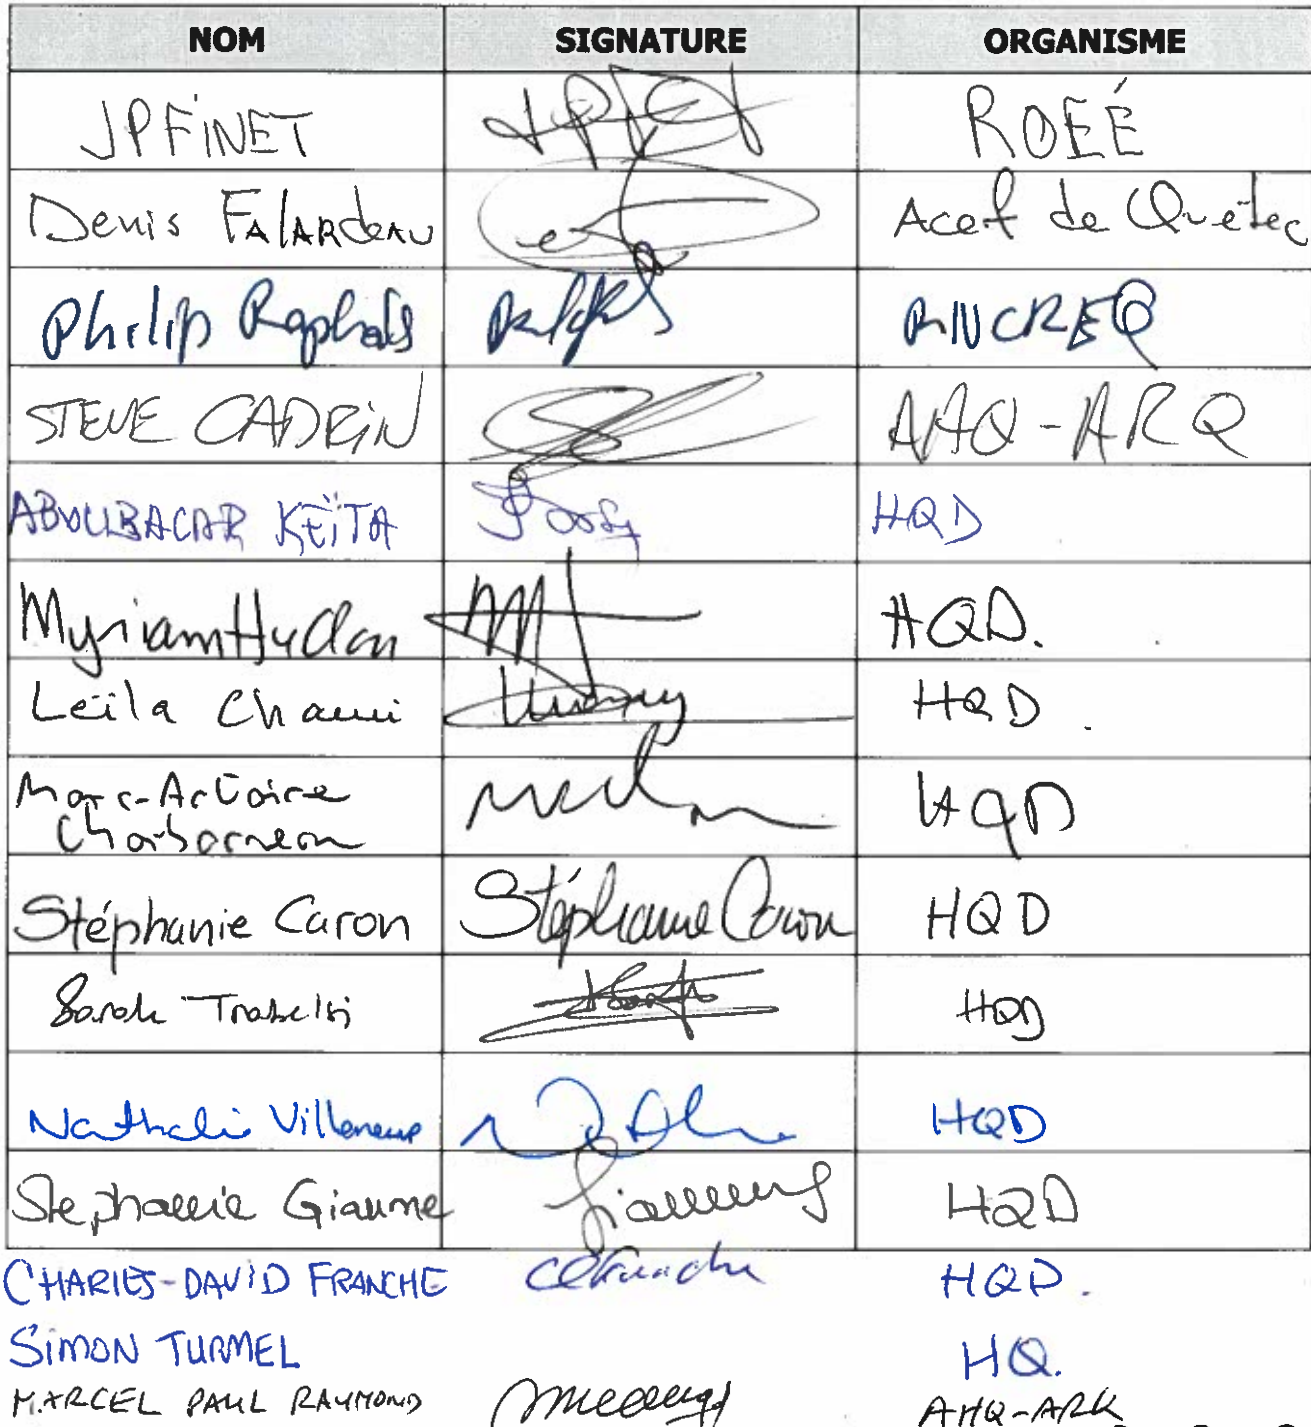 NOM SIGNATURE ORGANISME
JPFINET ROEÉ
Denis FALARDEAU Acef de Québec
Philip Raphals RNCREQ
STEVE CADRIN AHQ-ARQ
ABOULBACAR KEÏTA HQD
Myriam Hudon HQD.
Leïla Chaoui HQD.
Marc-Antoine HQD
Charbonneau
Stéphanie Caron Stéphanie Caron HQD
Sarah Trabelsi HQD
Nathalie Villeneuve HQD
Stephanie Giaume Giaume HQD
CHARLES-DAVID FRANCHE HQD.
SIMON TURMEL HQ.
MARCEL PAUL RAYMOND AHQ-ARK